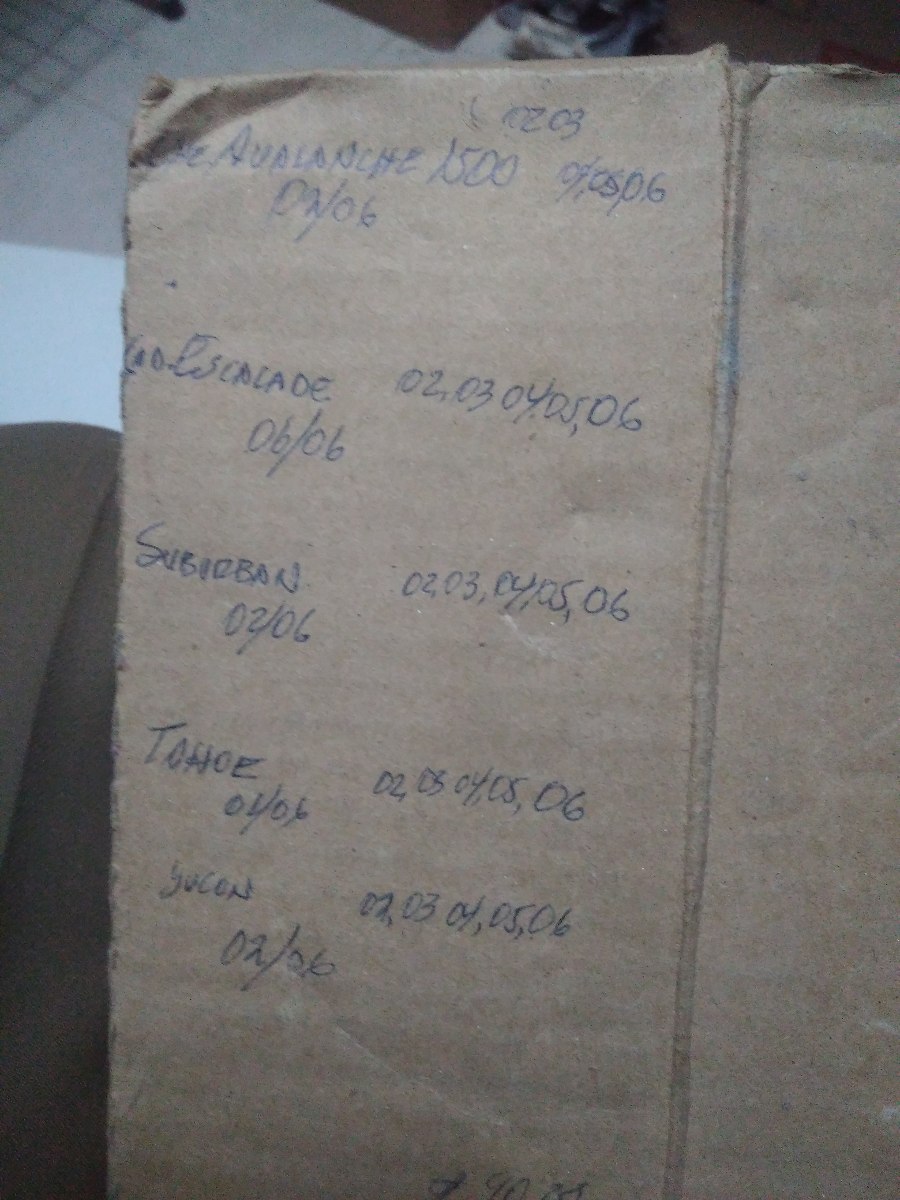 02 03
CHE AVALANCHE 1500 04,05,06
02/06
CAD-ESCALADE 02,03 04,05,06
06/06
SUBURBAN 02,03,04,05,06
02/06
TAHOE 02,03 04,05,06
02/06
YUCON 02,03 04,05,06
02/06